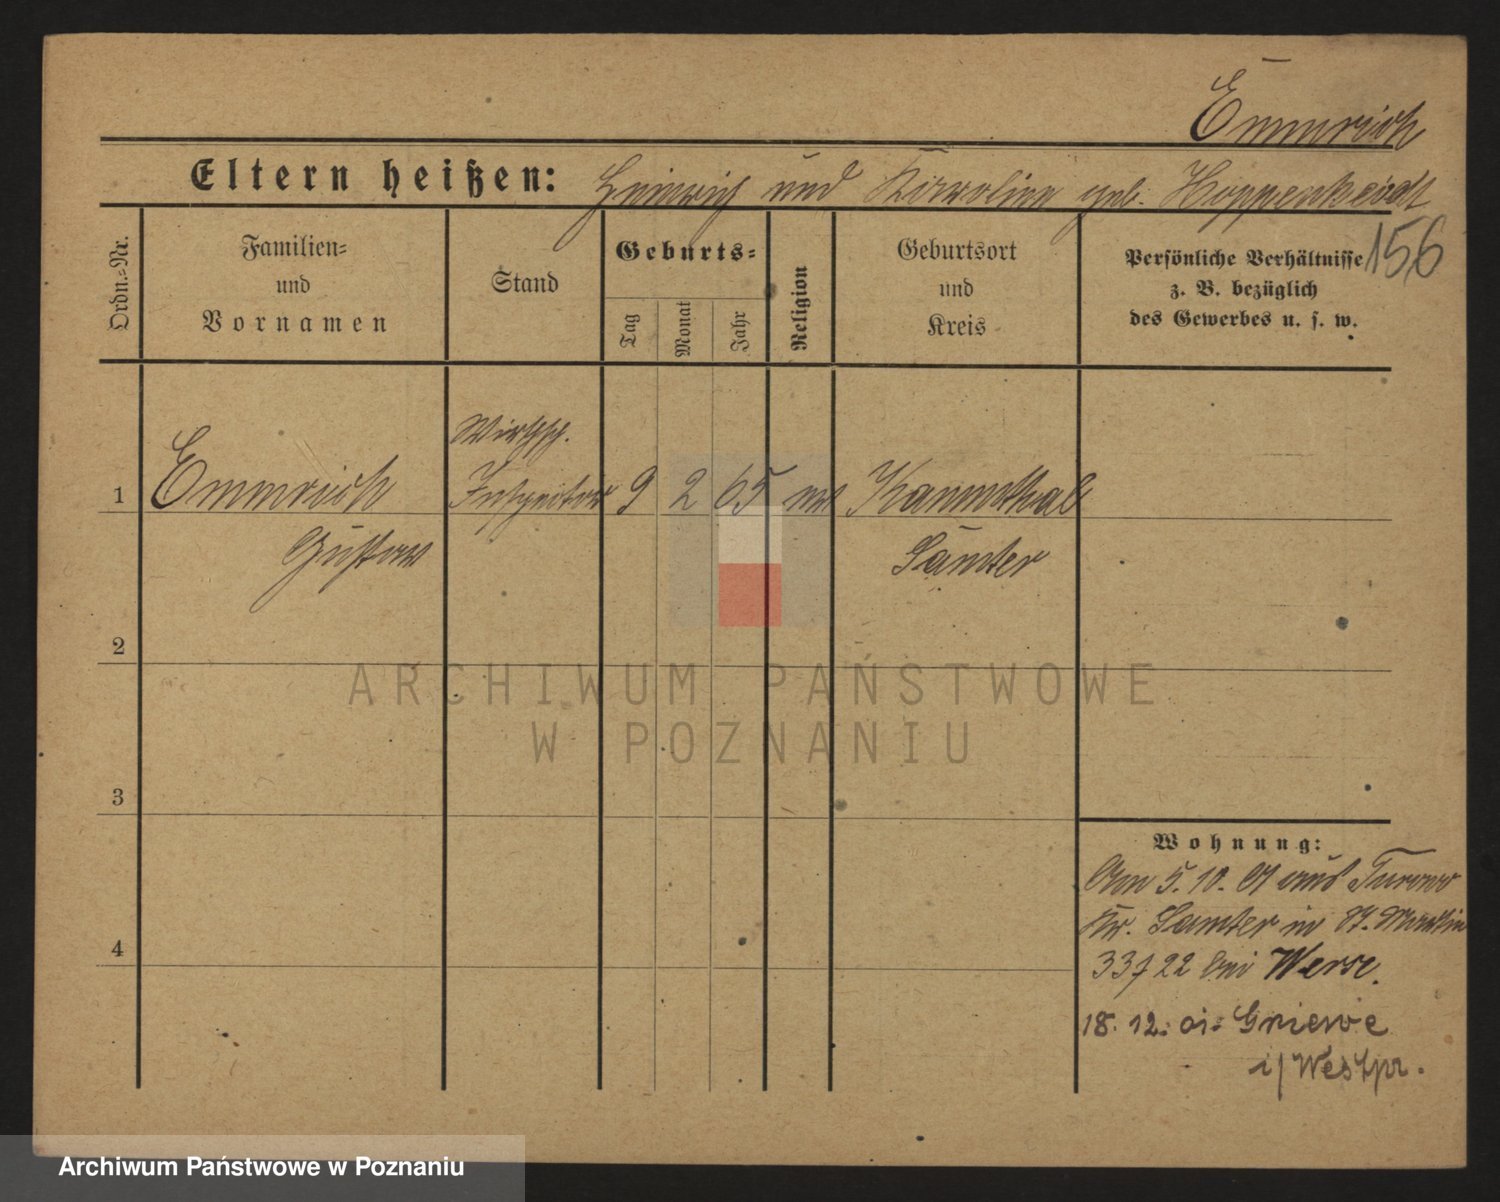 Emmrich
Eltern heißen: Heinrich und Karoline geb. Hoppenheidt
156
Ordn.=Nr.
Familien=
und
Vornamen
Stand
Geburts=
Tag
Monat
Jahr
Religion
Geburtsort
und
Kreis
Persönliche Verhältnisse
z. B. bezüglich
des Gewerbes u. s. w.
Wirthsch.
1 Emmrich Inspektor 9 2 65
Gustav Samter
2
3
4
Wohnung:
Am 5. 10. 01 aus Turowo
Kr. Samter in St. Martin
33/22 bei Werse
18. 12. 01. Gniewe
i/Westpr.
ARCHIWUM PAŃSTWOWE
W POZNANIU
Archiwum Państwowe w Poznaniu